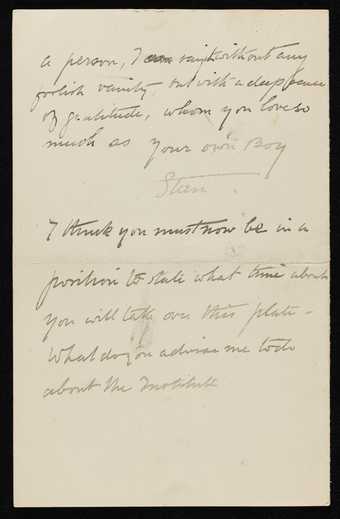 a person, I can say without any
foolish vanity but with a deep sense
of gratitude, whom you love so
much as your own Boy
Stan
I think you must now be in a
position to state what time about
you will take over this place -
What do you advise me to do
about the Institute